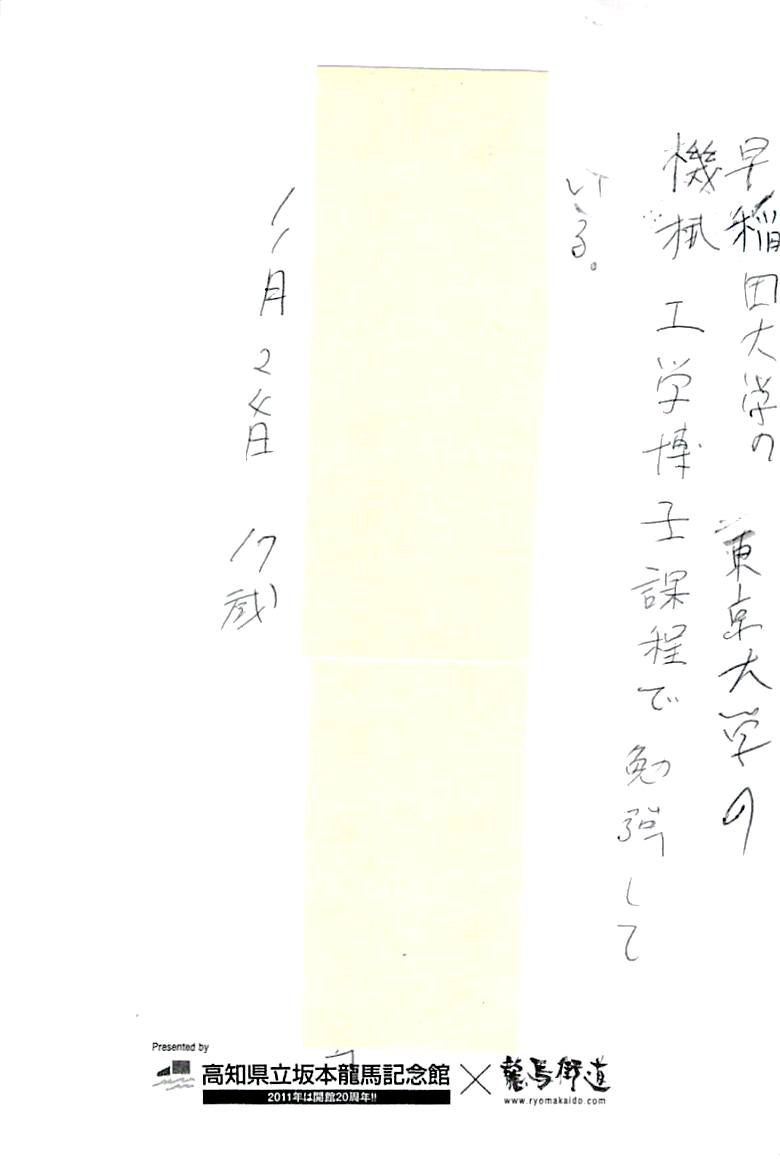 早稲田大学の 東京大学の
機械工学博士課程で勉強して
いる。
11月24日 17歳
Presented by
高知県立坂本龍馬記念館
2011年は開館20周年!!
龍馬街道
www.ryomakaido.com